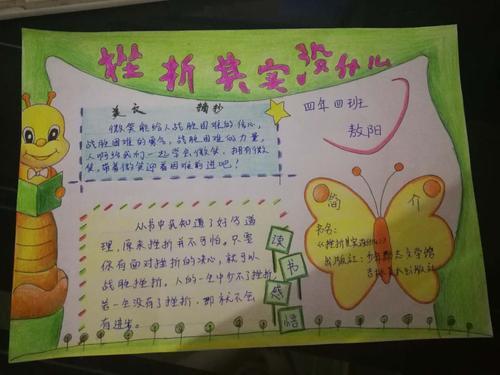 挫折其实没什么
美文 摘抄
微笑能给人战胜困难的信心,
战胜困难的勇气,战胜困难的力量,
人啊让我们一起学会微笑,拥有微
笑,带着微笑迎着困难前进吧!
四年四班
敖阳
从书中我知道了好多道
理,原来挫折并不可怕,只要
你有面对挫折的决心,就可以
战胜挫折,人的一生中少不了挫折,
若一生没有了挫折,那就不会
有进步。
读书感悟
简 介
书名:
《挫折其实没什么》
出版社:少年励志文学馆
吉林美术出版社